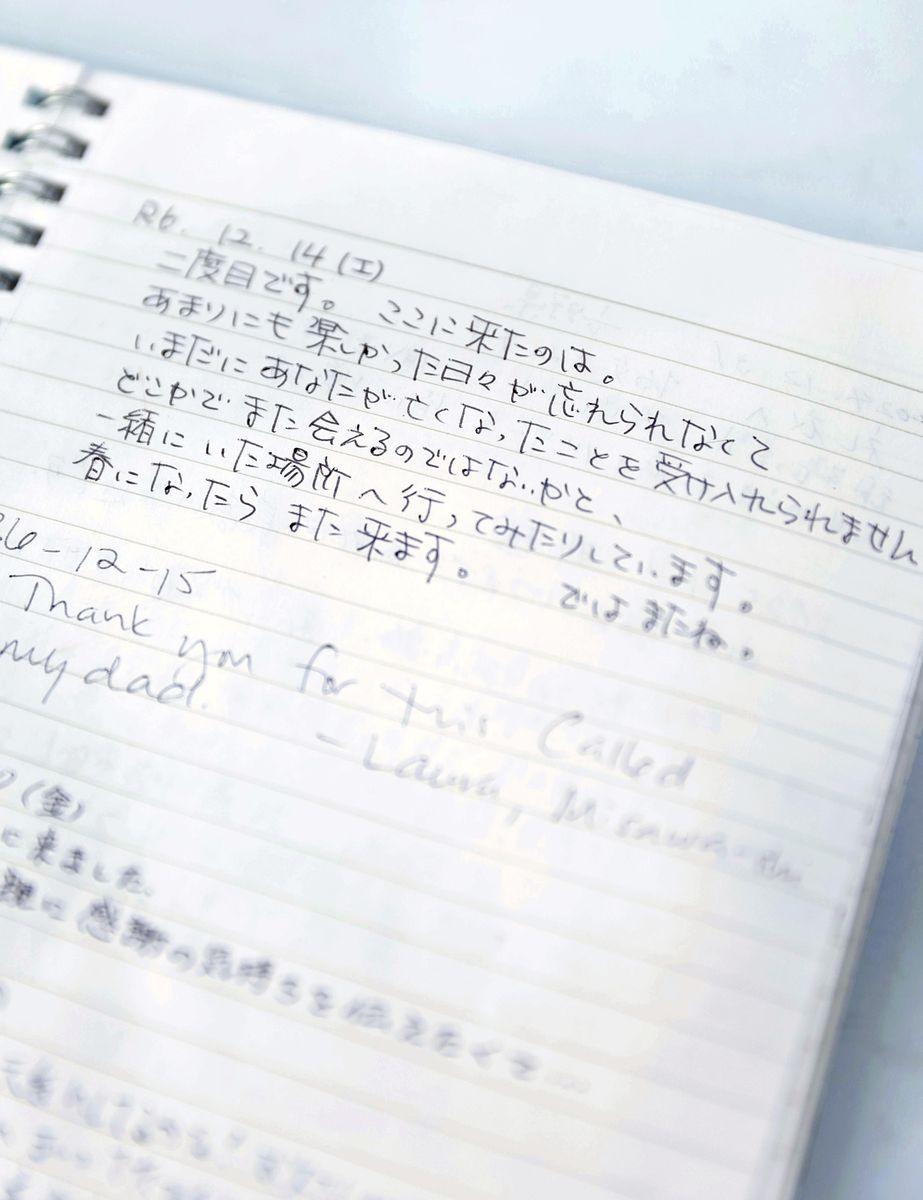 R6. 12. 14 (土)
二度目です。 ここに来たのは。
あまりにも楽しかった日々が忘れられなくて
いまだにあなたが亡くなったことを受け入れられません
どこかでまた会えるのではないかと、
一緒にいた場所へ行ってみたりしています。
春になったら また来ます。 ではまたね。
R6-12-15
Thank you for this Called
my dad.
- Laura, Misawa-shi
(金)
に来ました。
親に感謝の気持ちを伝えたくて…